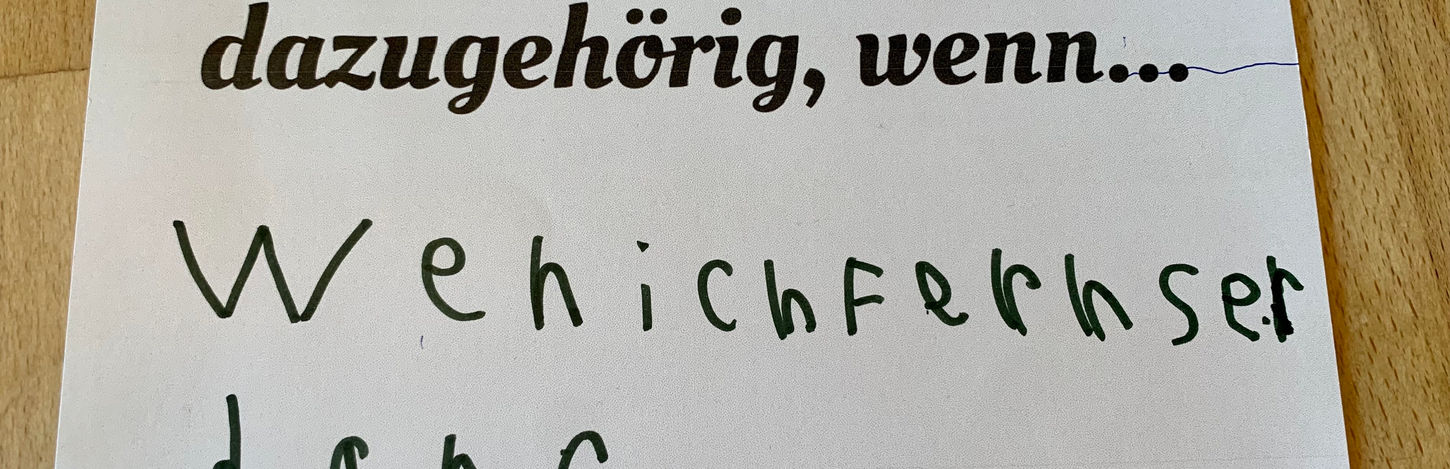 dazugehörig, wenn...
Wen ich Fernser